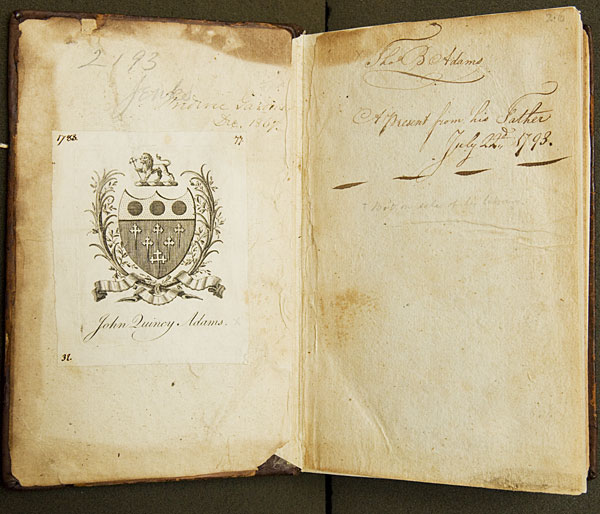 2193
Dec. 1867.
1783.
77
John Quincy Adams.
31.
210
Tho.s B Adams
A Present from his Father
July 22.d 1793.